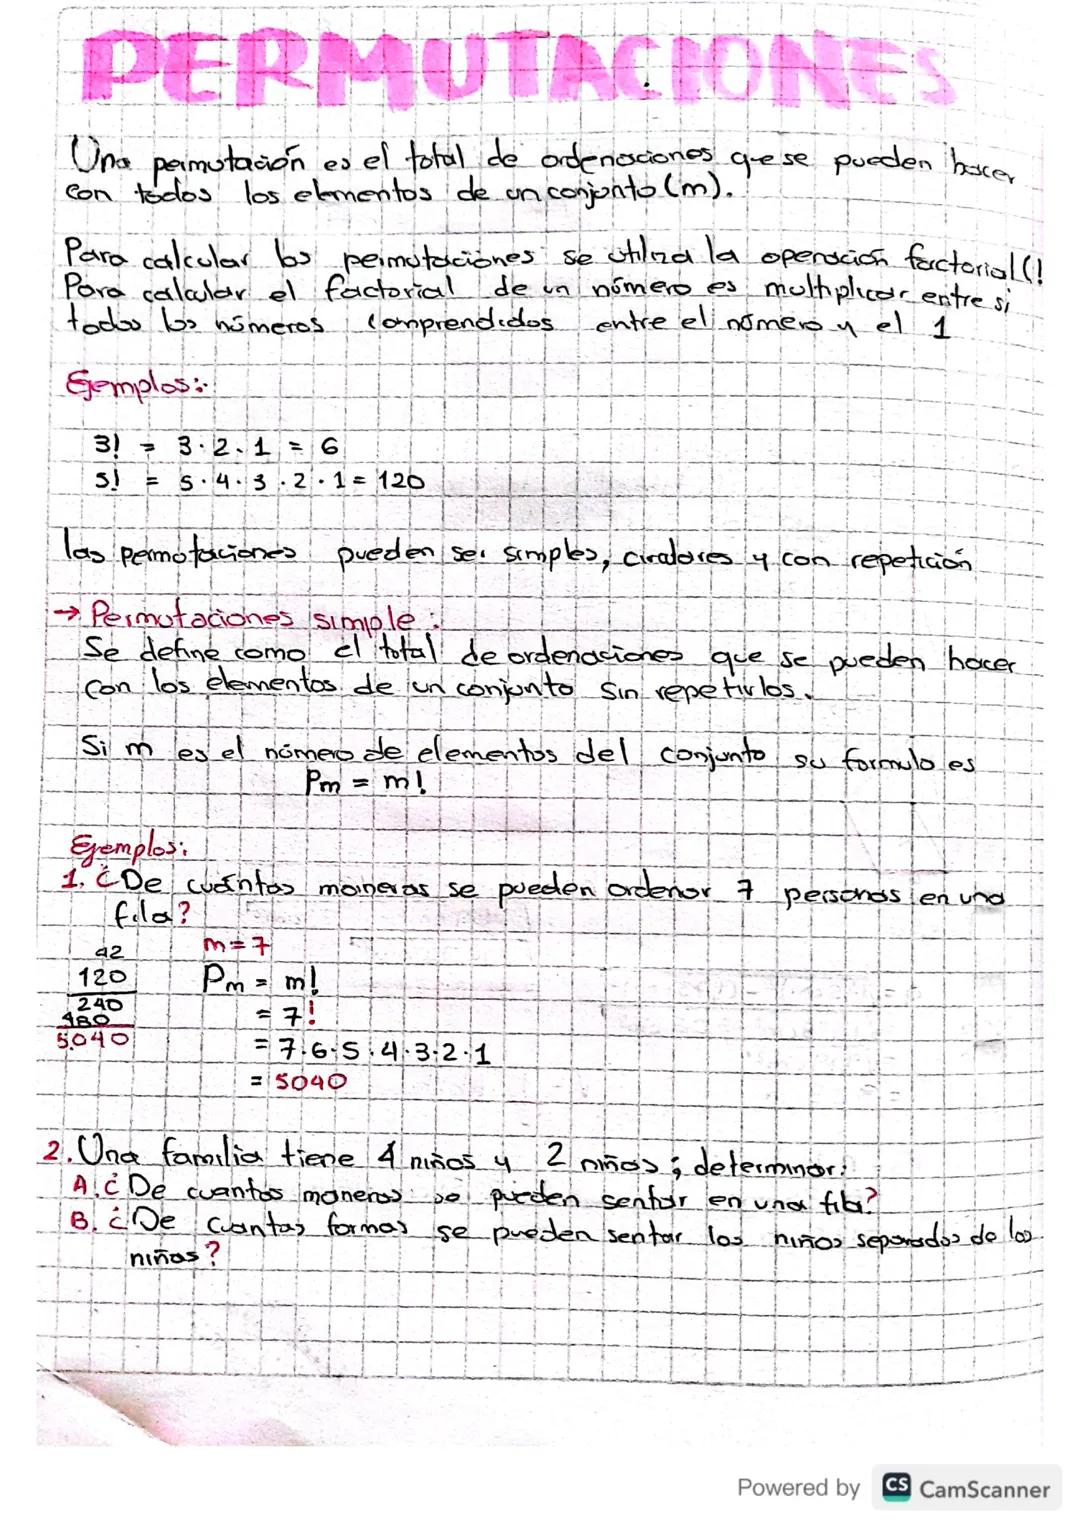 PERMUTACIONES
Una permutación es el total de ordenaciones que se pueden hacer
con todos los elementos de un conjunto (m).
Para calcular las permutaciones se utiliza la operación factorial (!
Para calcular el factorial de un número es multiplicar entre si
todos los números comprendidos entre el número y el 1
Ejemplos:
3! = 3·2·1 = 6
5! = 5·4·3·2·1 = 120
las permutaciones pueden ser simples, circulares y con repetición
→ Permutaciones simple:
Se define como el total de ordenaciones que se pueden hacer
con los elementos de un conjunto sin repetirlos.
Si m es el número de elementos del conjunto su formula es
Pm = m!
Ejemplos:
1. ¿De cuántas maneras se pueden ordenar 7 personas en una
fila?
m=7
42
120
240
480
5.040
Pm = m!
= 7!
= 7·6·5·4·3·2·1
= 5040
2. Una familia tiene 4 niños y 2 niñas; determinar:
A. ¿De cuantas maneras se pueden sentar en una fila?
B. ¿De cuantas formas se pueden sentar los niños separados de las
niñas?
Powered by CS CamScanner